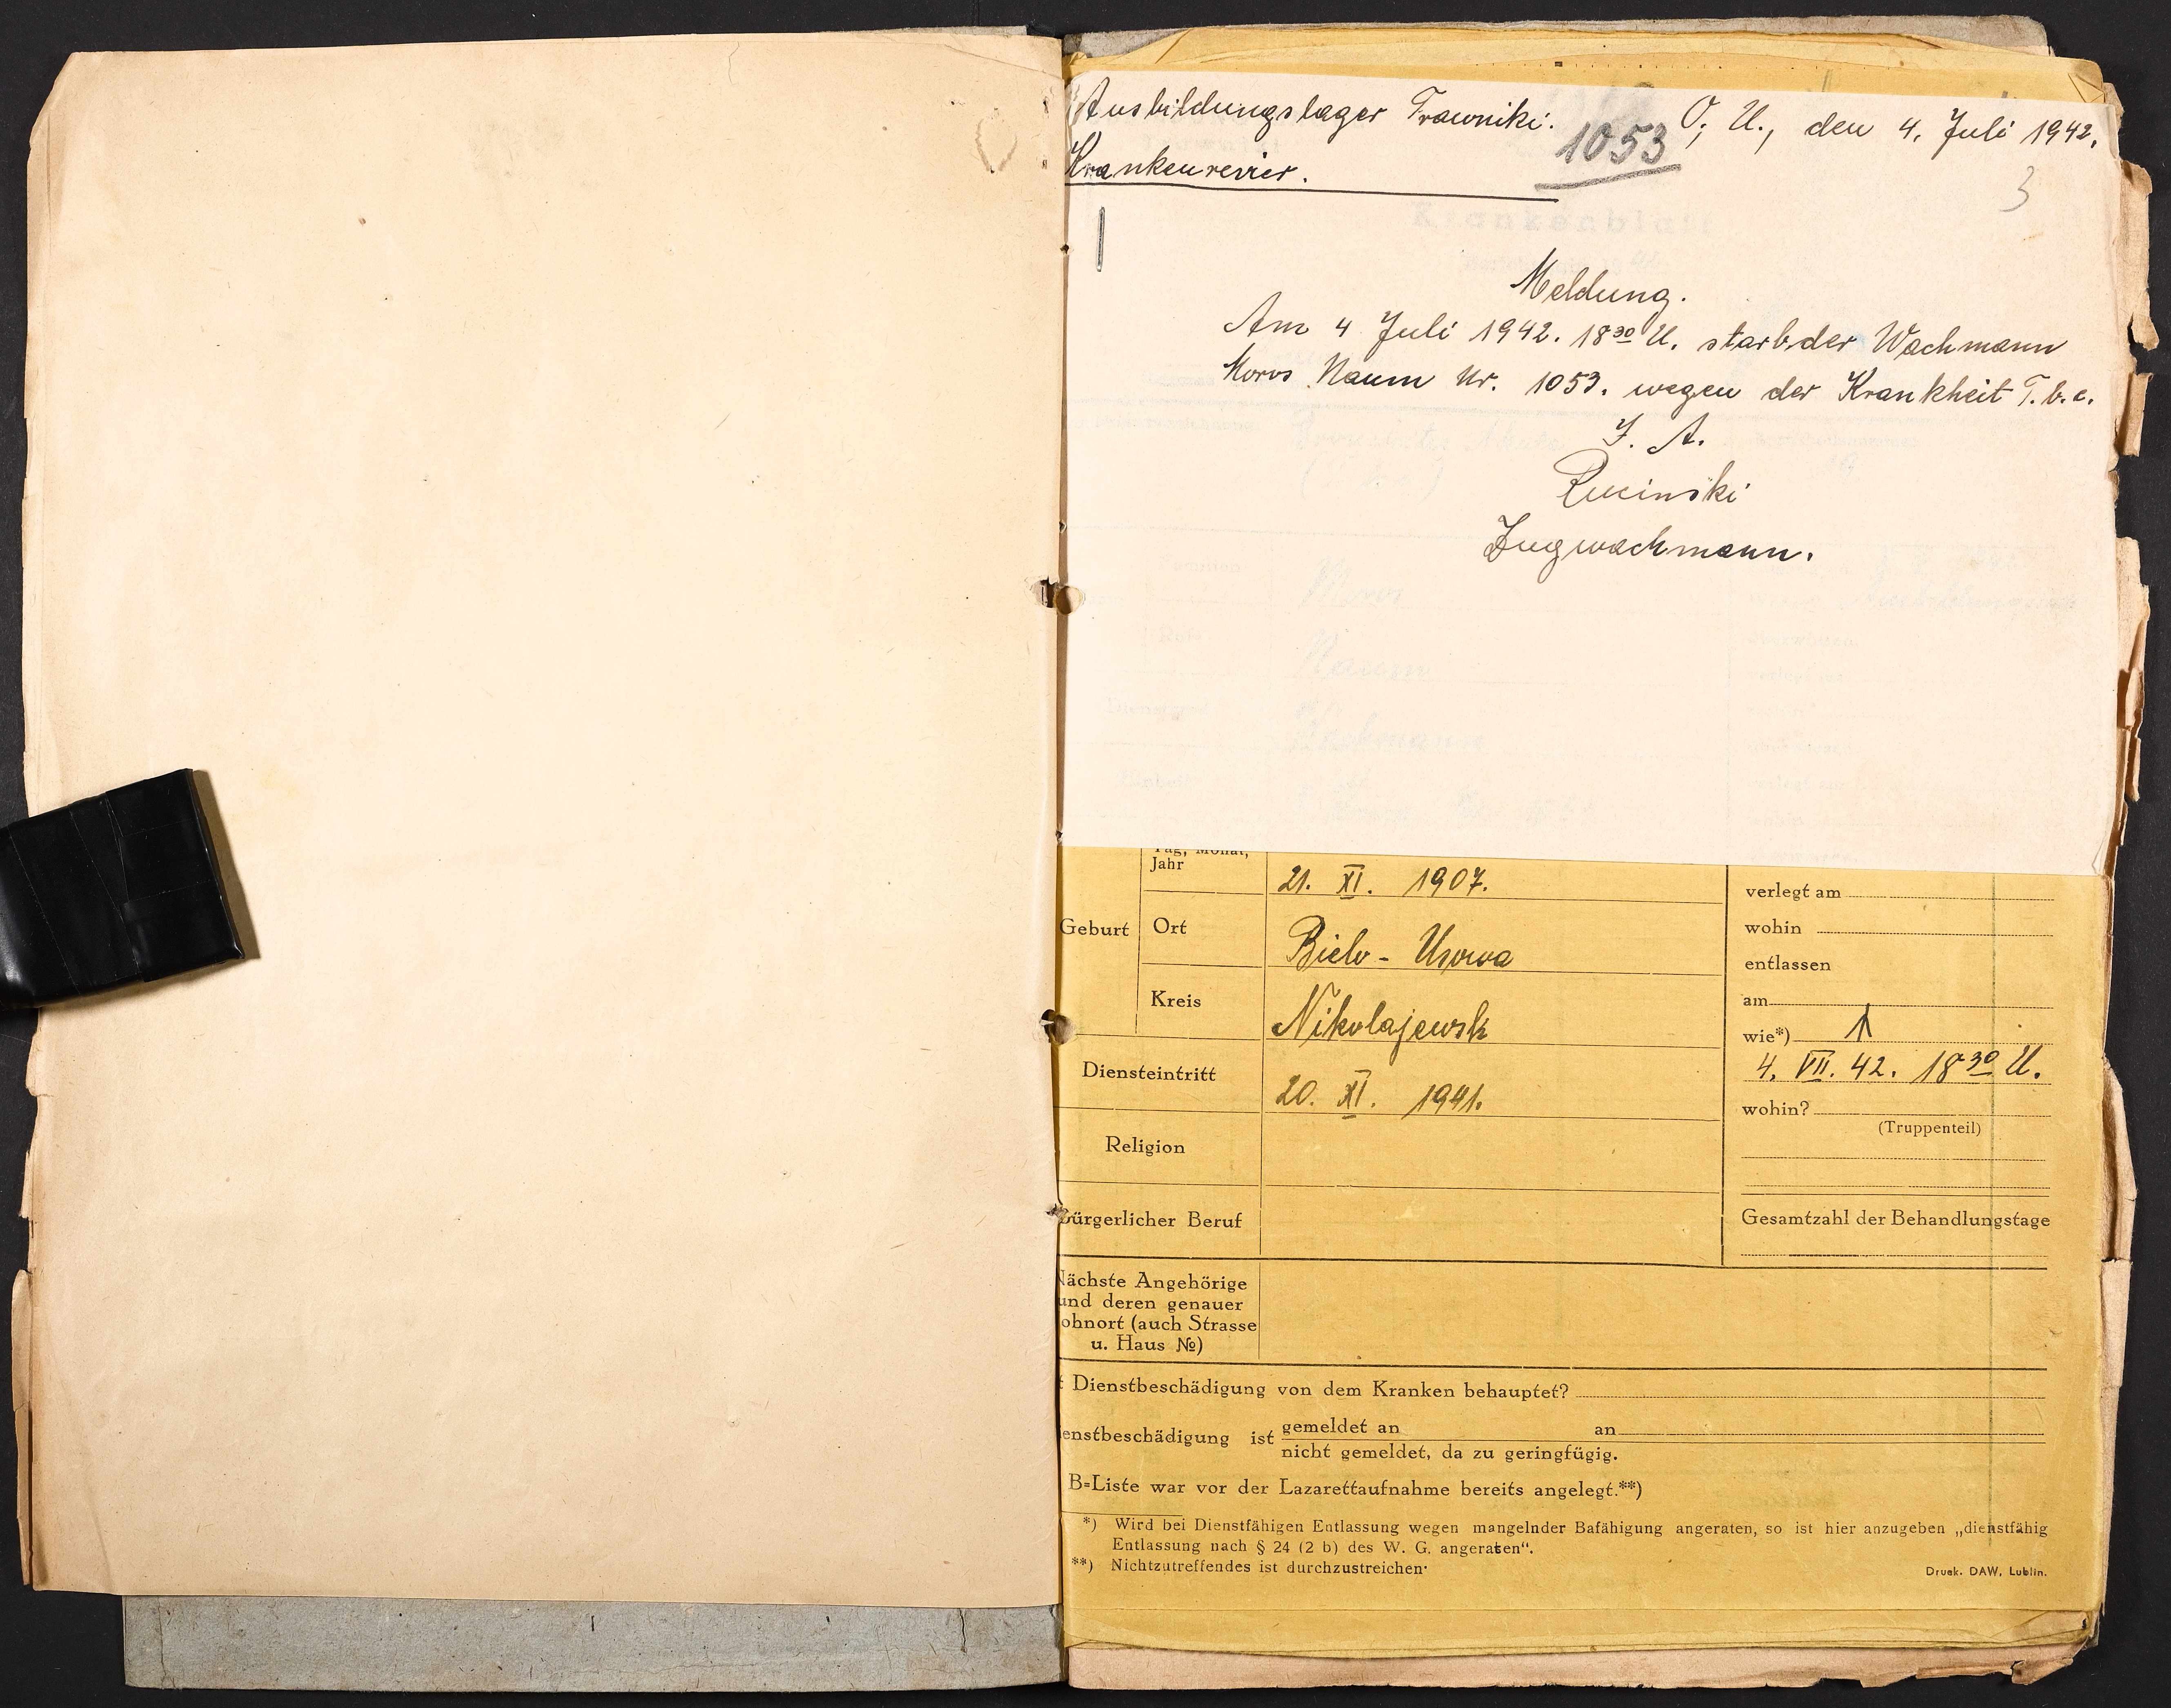 Ausbildungslager Trawniki. 1053 O. U., den 4. Juli 1942.
Krankenrevier.
3
Meldung.
Am 4 Juli 1942. 18 30 U. starb der Wachmann
Moros Naum Nr. 1053. wegen der Krankheit T.b.c.
I. A.
Zugwachmann.
Krankenblatt
Moros
Naum
Wachmann
Tag, Monat,
Jahr
21. XI. 1907.
Geburt
Ort
Kreis
Nikolajewsk
Diensteintritt
20. XI. 1941.
Religion
bürgerlicher Beruf
verlegt am
wohin
entlassen
am
wie*)
4. VII. 42. 18 30 U.
wohin?
(Truppenteil)
Gesamtzahl der Behandlungstage
Nächste Angehörige
und deren genauer
ohnort (auch Strasse
u. Haus №)
Dienstbeschädigung von dem Kranken behauptet?
enstbeschädigung ist gemeldet an an
nicht gemeldet, da zu geringfügig.
B=Liste war vor der Lazarettaufnahme bereits angelegt.**)
*) Wird bei Dienstfähigen Entlassung wegen mangelnder Bafähigung angeraten, so ist hier anzugeben „dienstfähig
Entlassung nach § 24 (2 b) des W. G. angeraten“.
**) Nichtzutreffendes ist durchzustreichen·
Druck. DAW, Lublin.